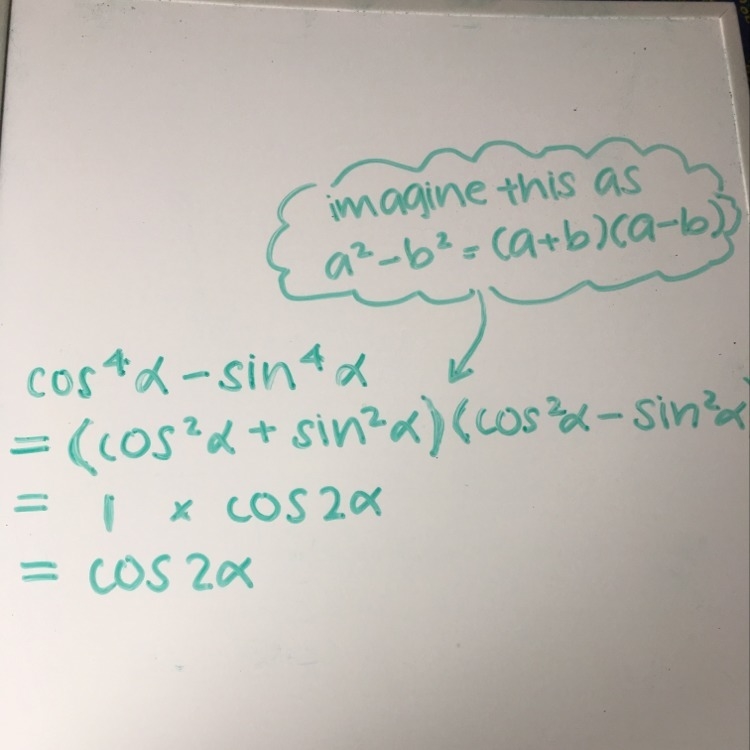 imagine this as
a² - b² = (a+b)(a-b)
cos⁴α - sin⁴α
= (cos²α + sin²α)(cos²α - sin²α
= 1 × cos2α
= cos2α